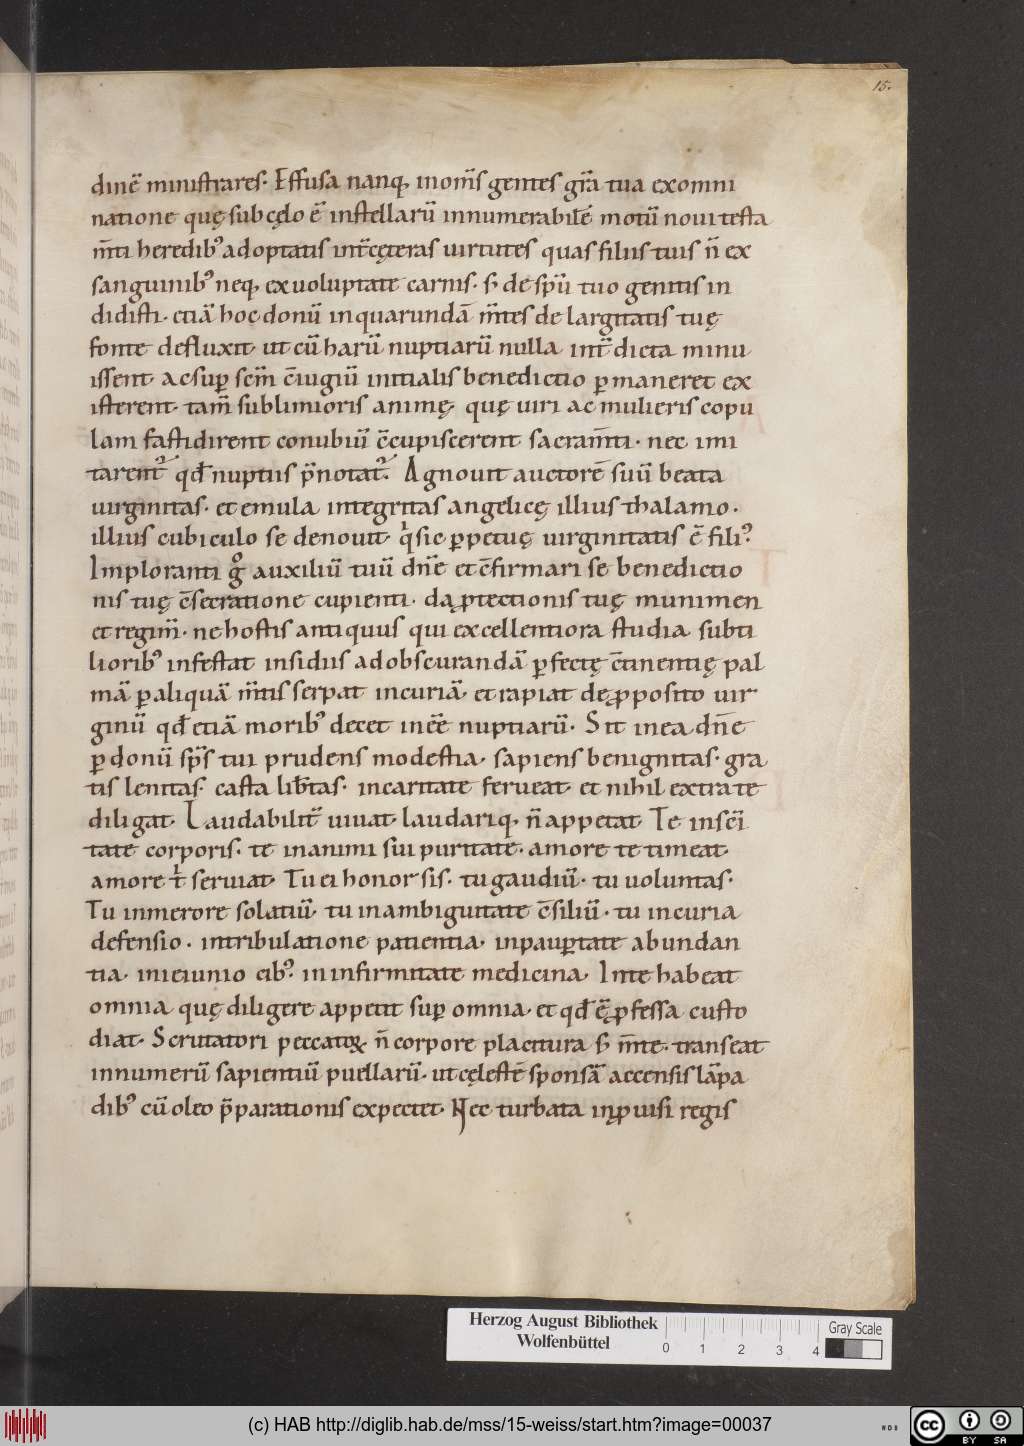 15.
dinē ministrares. Effusa nanq, inom̄s gentes gr̄a tua exomni
natione quę sub cęlo ē instellarū innumerabilē motū noui testa
m̄ti heredibꝰ adoptatis int̄ cęteras uirtutes quas filiis tuis n̄ ex
sanguinibꝰ neq, exuoluptate carnis. s; de sp̄u tuo genitis in
didisti. etiā hoc donū inquarundā m̄tes de largitatis tuę
fonte defluxit. ut cū harū nuptiarū nulla int̄dicta minu
issent. acsuꝑ sc̄m c̄iugiū initialis benedictio ꝑmaneret ex
isterent. tam̄ sublimioris animę. quę uiri ac mulieris copu
lam fastidirent conubiū c̄cupiscerent sacram̄ti. nec imi
tarent᷑ qđ nuptiis p̄notat᷑. Agnouit auctorē suū beata
uirginitas. et emula integritas angelicę illius thalamo.
illius cubiculo se denouit. qͥ sic ꝑpetuę uirginitatis ē filiꝰ.
Imploranti gͦ auxiliū tuū dn̄e et c̄firmari se benedictio
nis tuę c̄secratione cupienti. da ꝓtectionis tuę munimen
et regim̄. ne hostis antiquus qui excellentiora studia subti
lioribꝰ infestat insidiis adobscurandā ꝑfectę c̄tinentię pal
mā ꝑ aliquā m̄tis serpat incuriā. et rapiat de ꝓposito uir
ginū qđ etiā moribꝰ decet inēē nuptiarū. Sit inea dn̄e
ꝑ donū sp̄s tui prudens modestia. sapiens benignitas. gra
uis lenitas. casta lib̄tas. incaritate ferueat. et nihil extra te
diligat. Laudabilit̄ uiuat. laudariq, n̄ appetat. Te insc̄i
tate corporis. te inanimi sui puritate. amore te timeat.
amore tͥ seruiat. Tu ei honor sis. tu gaudiū. tu uoluntas.
Tu inmerore solatiū. tu inambiguitate c̄siliū. tu incuria
defensio. intribulatione patientia. inpauꝑtate abundan
tia. inieiunio cibꝰ. in infirmitate medicina. Inte habeat
omnia quę diligere appetit suꝑ omnia. et qđ ē ꝓfessa custo
diat. Scrutatori peccatoꝝ n̄ corpore placitura s; m̄te. transeat
innumerū sapientiū puellarū. ut cęlestē sponsā accensis lāpa
dibꝰ cū oleo p̄parationis expectet. Nec turbata inꝓuisi regis
Herzog August Bibliothek
Wolfenbüttel
0 1 2 3 4
Gray Scale
(c) HAB http://diglib.hab.de/mss/15-weiss/start.htm?image=00037
cc BY SA